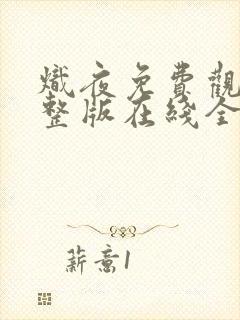 熾夜免費觀
整版在綫全
薪意1